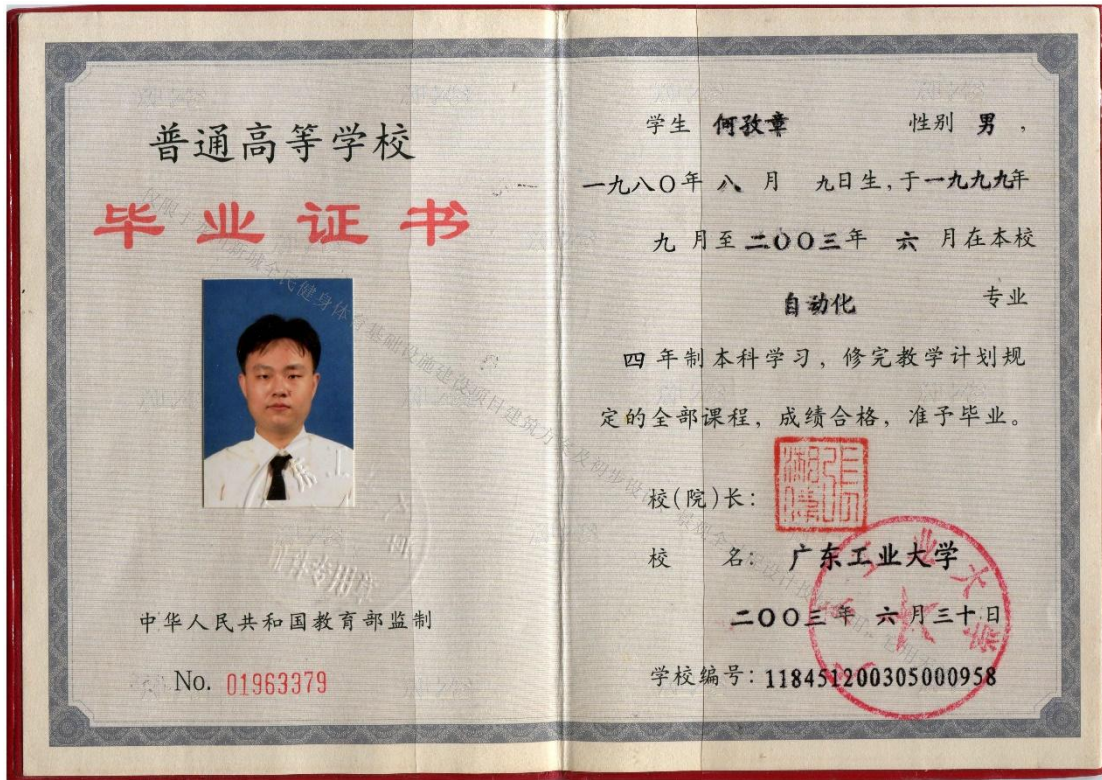 普通高等学校
毕业证书
中华人民共和国教育部监制
No. 01963379
学生 何孜章 性别 男，
一九八〇年 八 月 九日生，于一九九九年
九 月至二〇〇三年 六 月在本校
自动化 专业
四 年制本科学习，修完教学计划规
定的全部课程，成绩合格，准予毕业。
校(院)长：
校 名： 广东工业大学
二〇〇三 年 六 月三十日
学校编号：118451200305000958